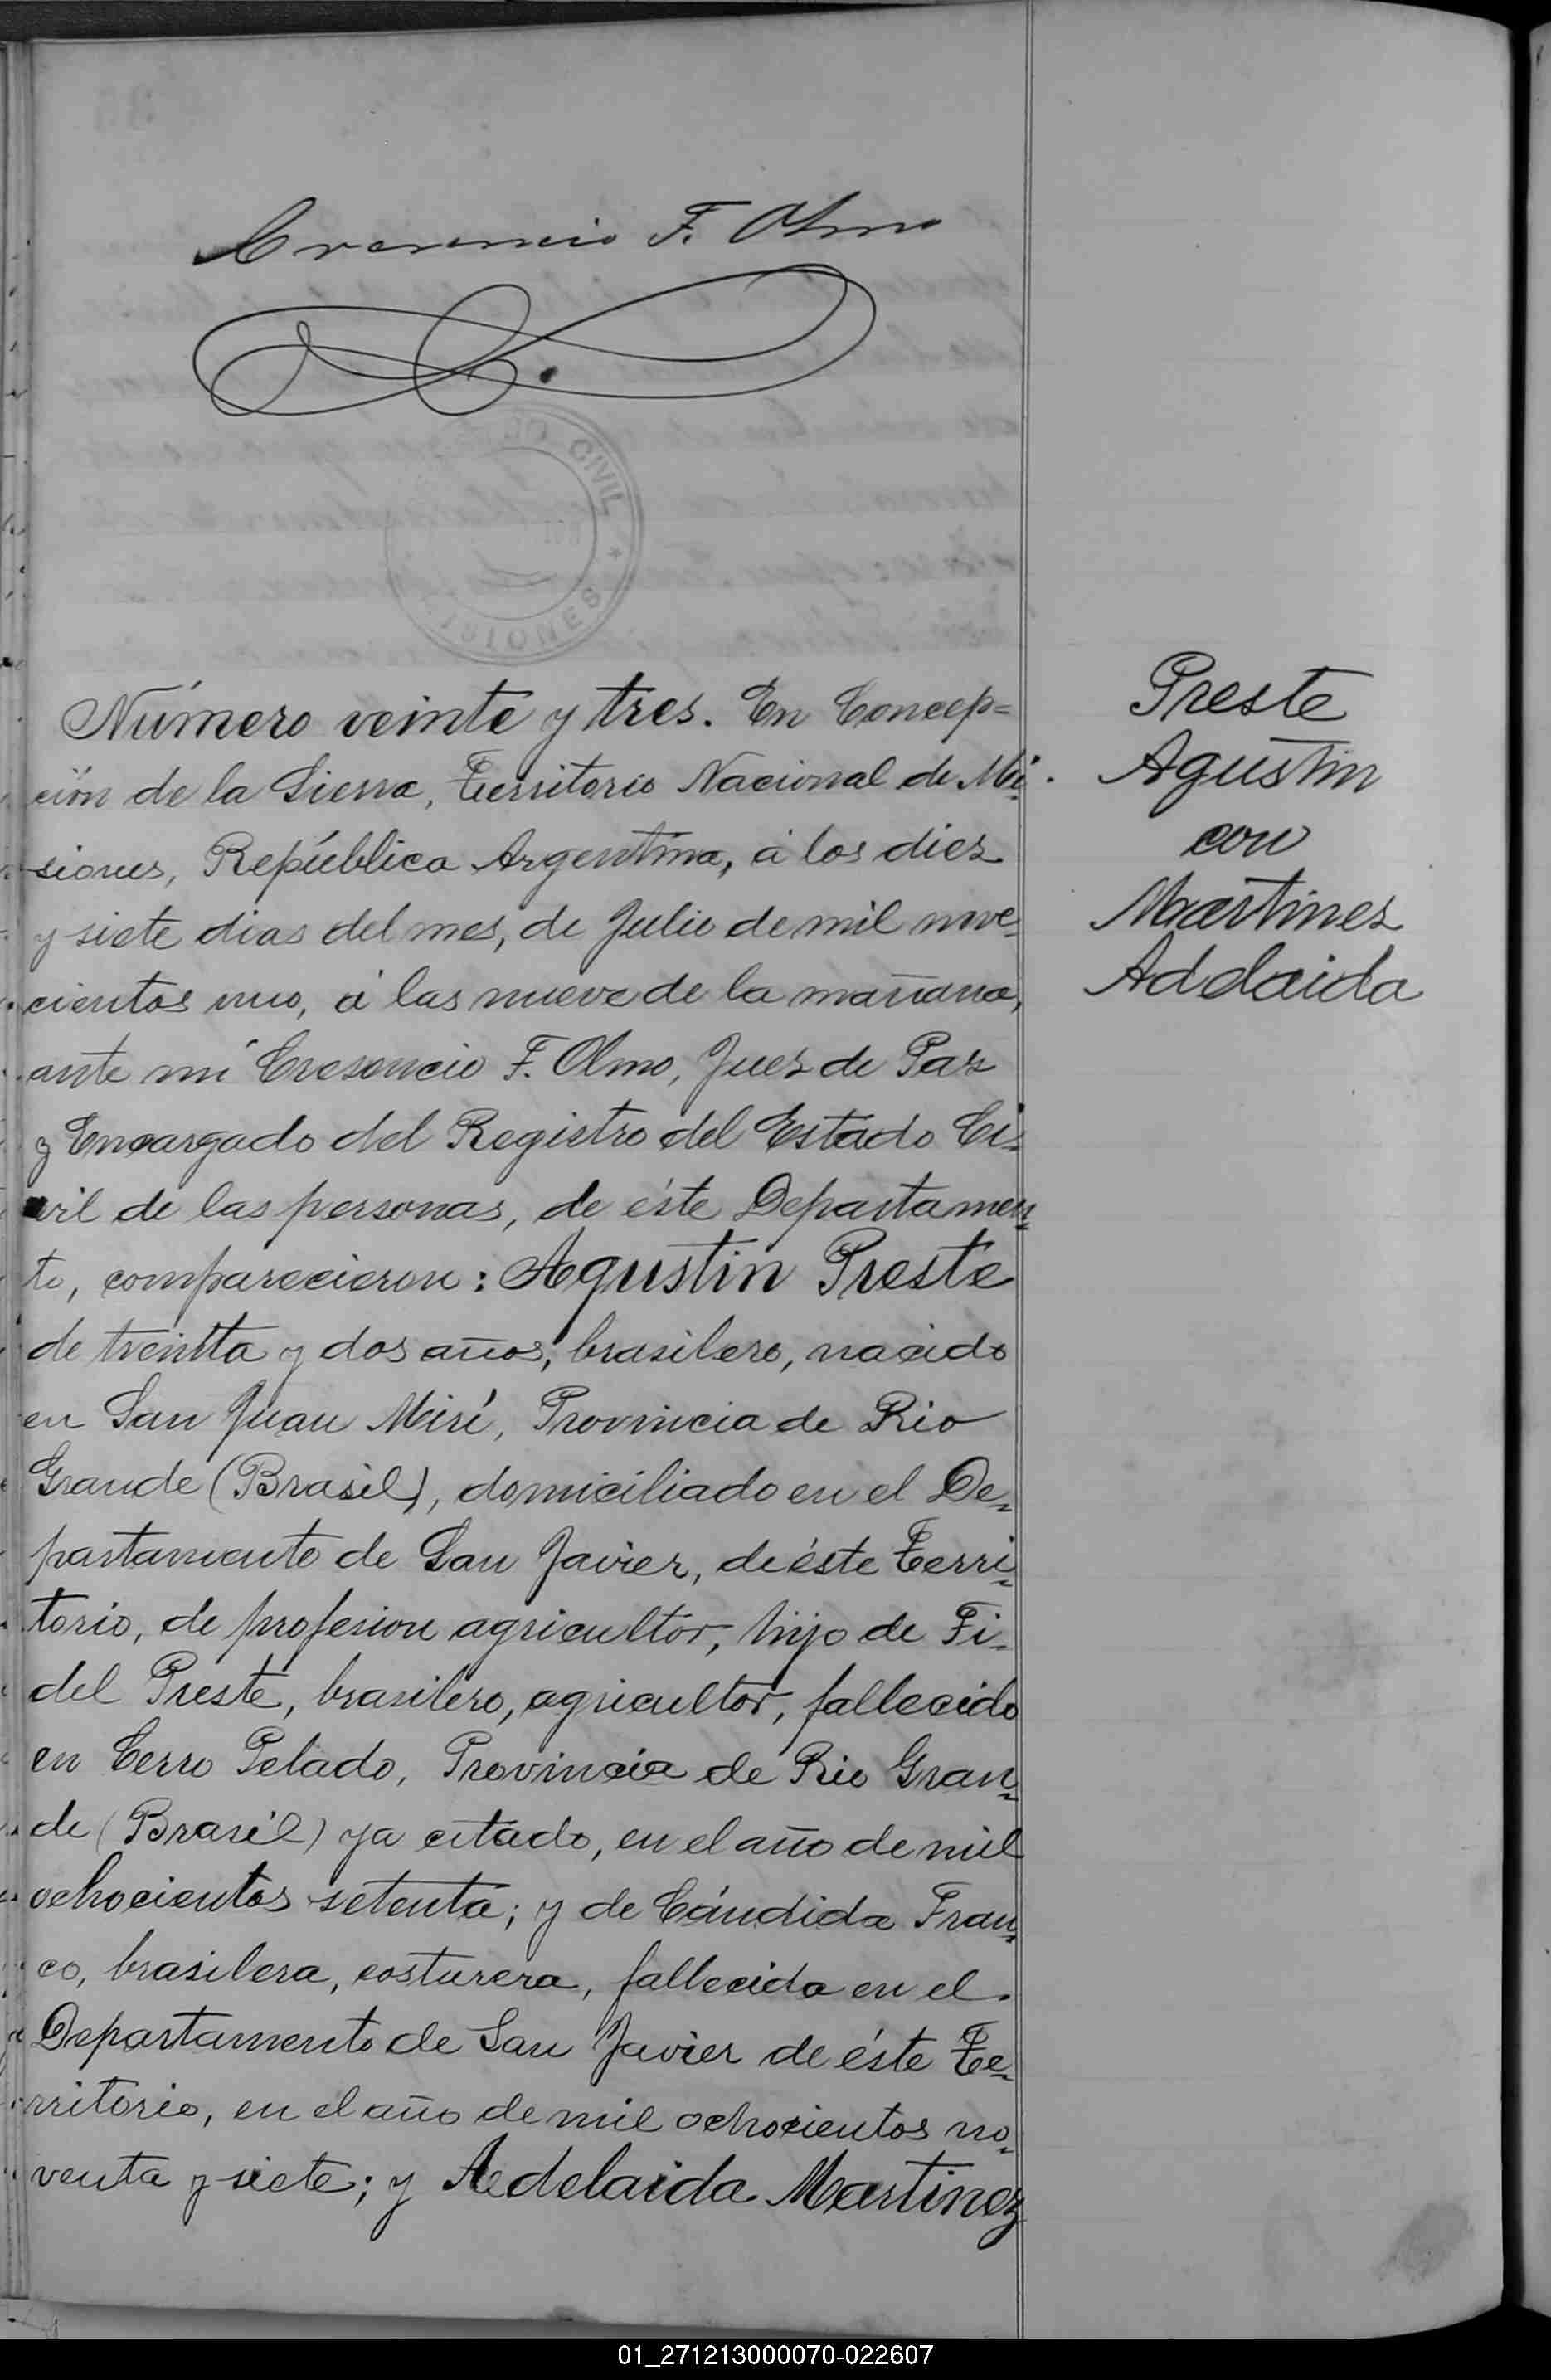 Cresencio F. Olmo
CIVIL
MISIONES
Número veinte y tres. En Concep=
ción de la Sierra, Territorio Nacional de Mi-
siones, República Argentina, á los diez
y siete dias del mes, de Julio de mil nove-
cientos uno, á las nueve de la mañana,
ante mí Cresencio F. Olmo, Juez de Paz
y Encargado del Registro del Estado Ci-
vil de las personas, de éste Departamen-
to, comparecieron: Agustin Preste
de treinta y dos años, brasilero, nacido
en San Juan Mirí, Provincia de Rio
Grande (Brasil), domiciliado en el De-
partamento de San Javier, de éste Terri-
torio, de profesion agricultor, hijo de Fi-
del Preste, brasilero, agricultor, fallecido
en Cerro Pelado, Provincia de Rio Gran-
de (Brasil) ya citado, en el año de mil
ochocientos setenta; y de Cándida Fran-
co, brasilera, costurera, fallecida en el
Departamento de San Javier de éste Te-
rritorio, en el año de mil ochocientos no-
venta y siete; y Adelaida Martinez
Preste
Agustin
con
Martinez
Adelaida
01_271213000070-022607